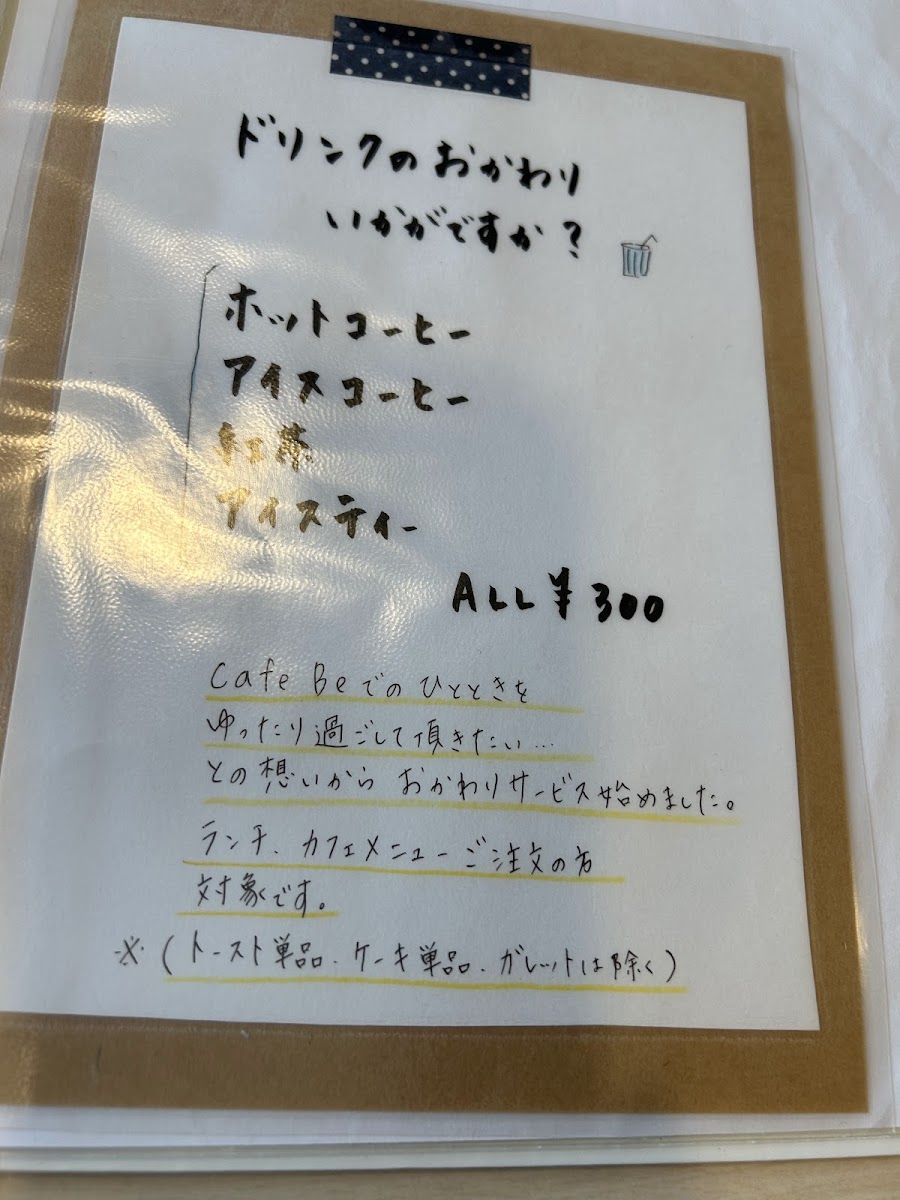 ドリンクのおかわり
いかがですか?
ホットコーヒー
アイスコーヒー
紅茶
アイスティー
ALL ¥300
Cafe Beでのひとときを
ゆったり過ごして頂きたい…
との想いから おかわりサービス始めました。
ランチ、カフェメニューご注文の方
対象です。
※(トースト単品、ケーキ単品、ガレットは除く)